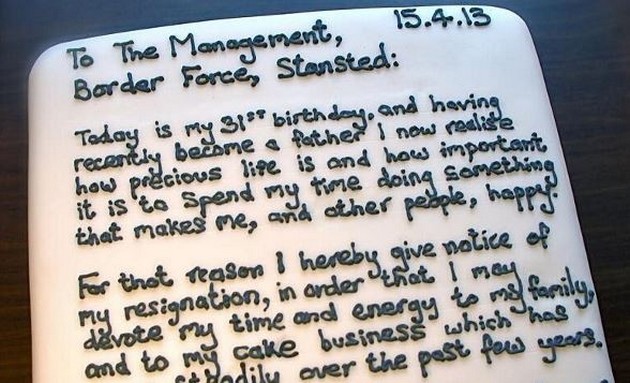 15.4.13
To The Management,
Border Force, Stansted:
Today is my 31st birthday, and having
recently become a father I now realise
how precious life is and how important
it is to spend my time doing something
that makes me, and other people, happy.
For that reason I hereby give notice of
my resignation, in order that I may
devote my time and energy to my family,
and to my cake business which has
steadily over the past few years.